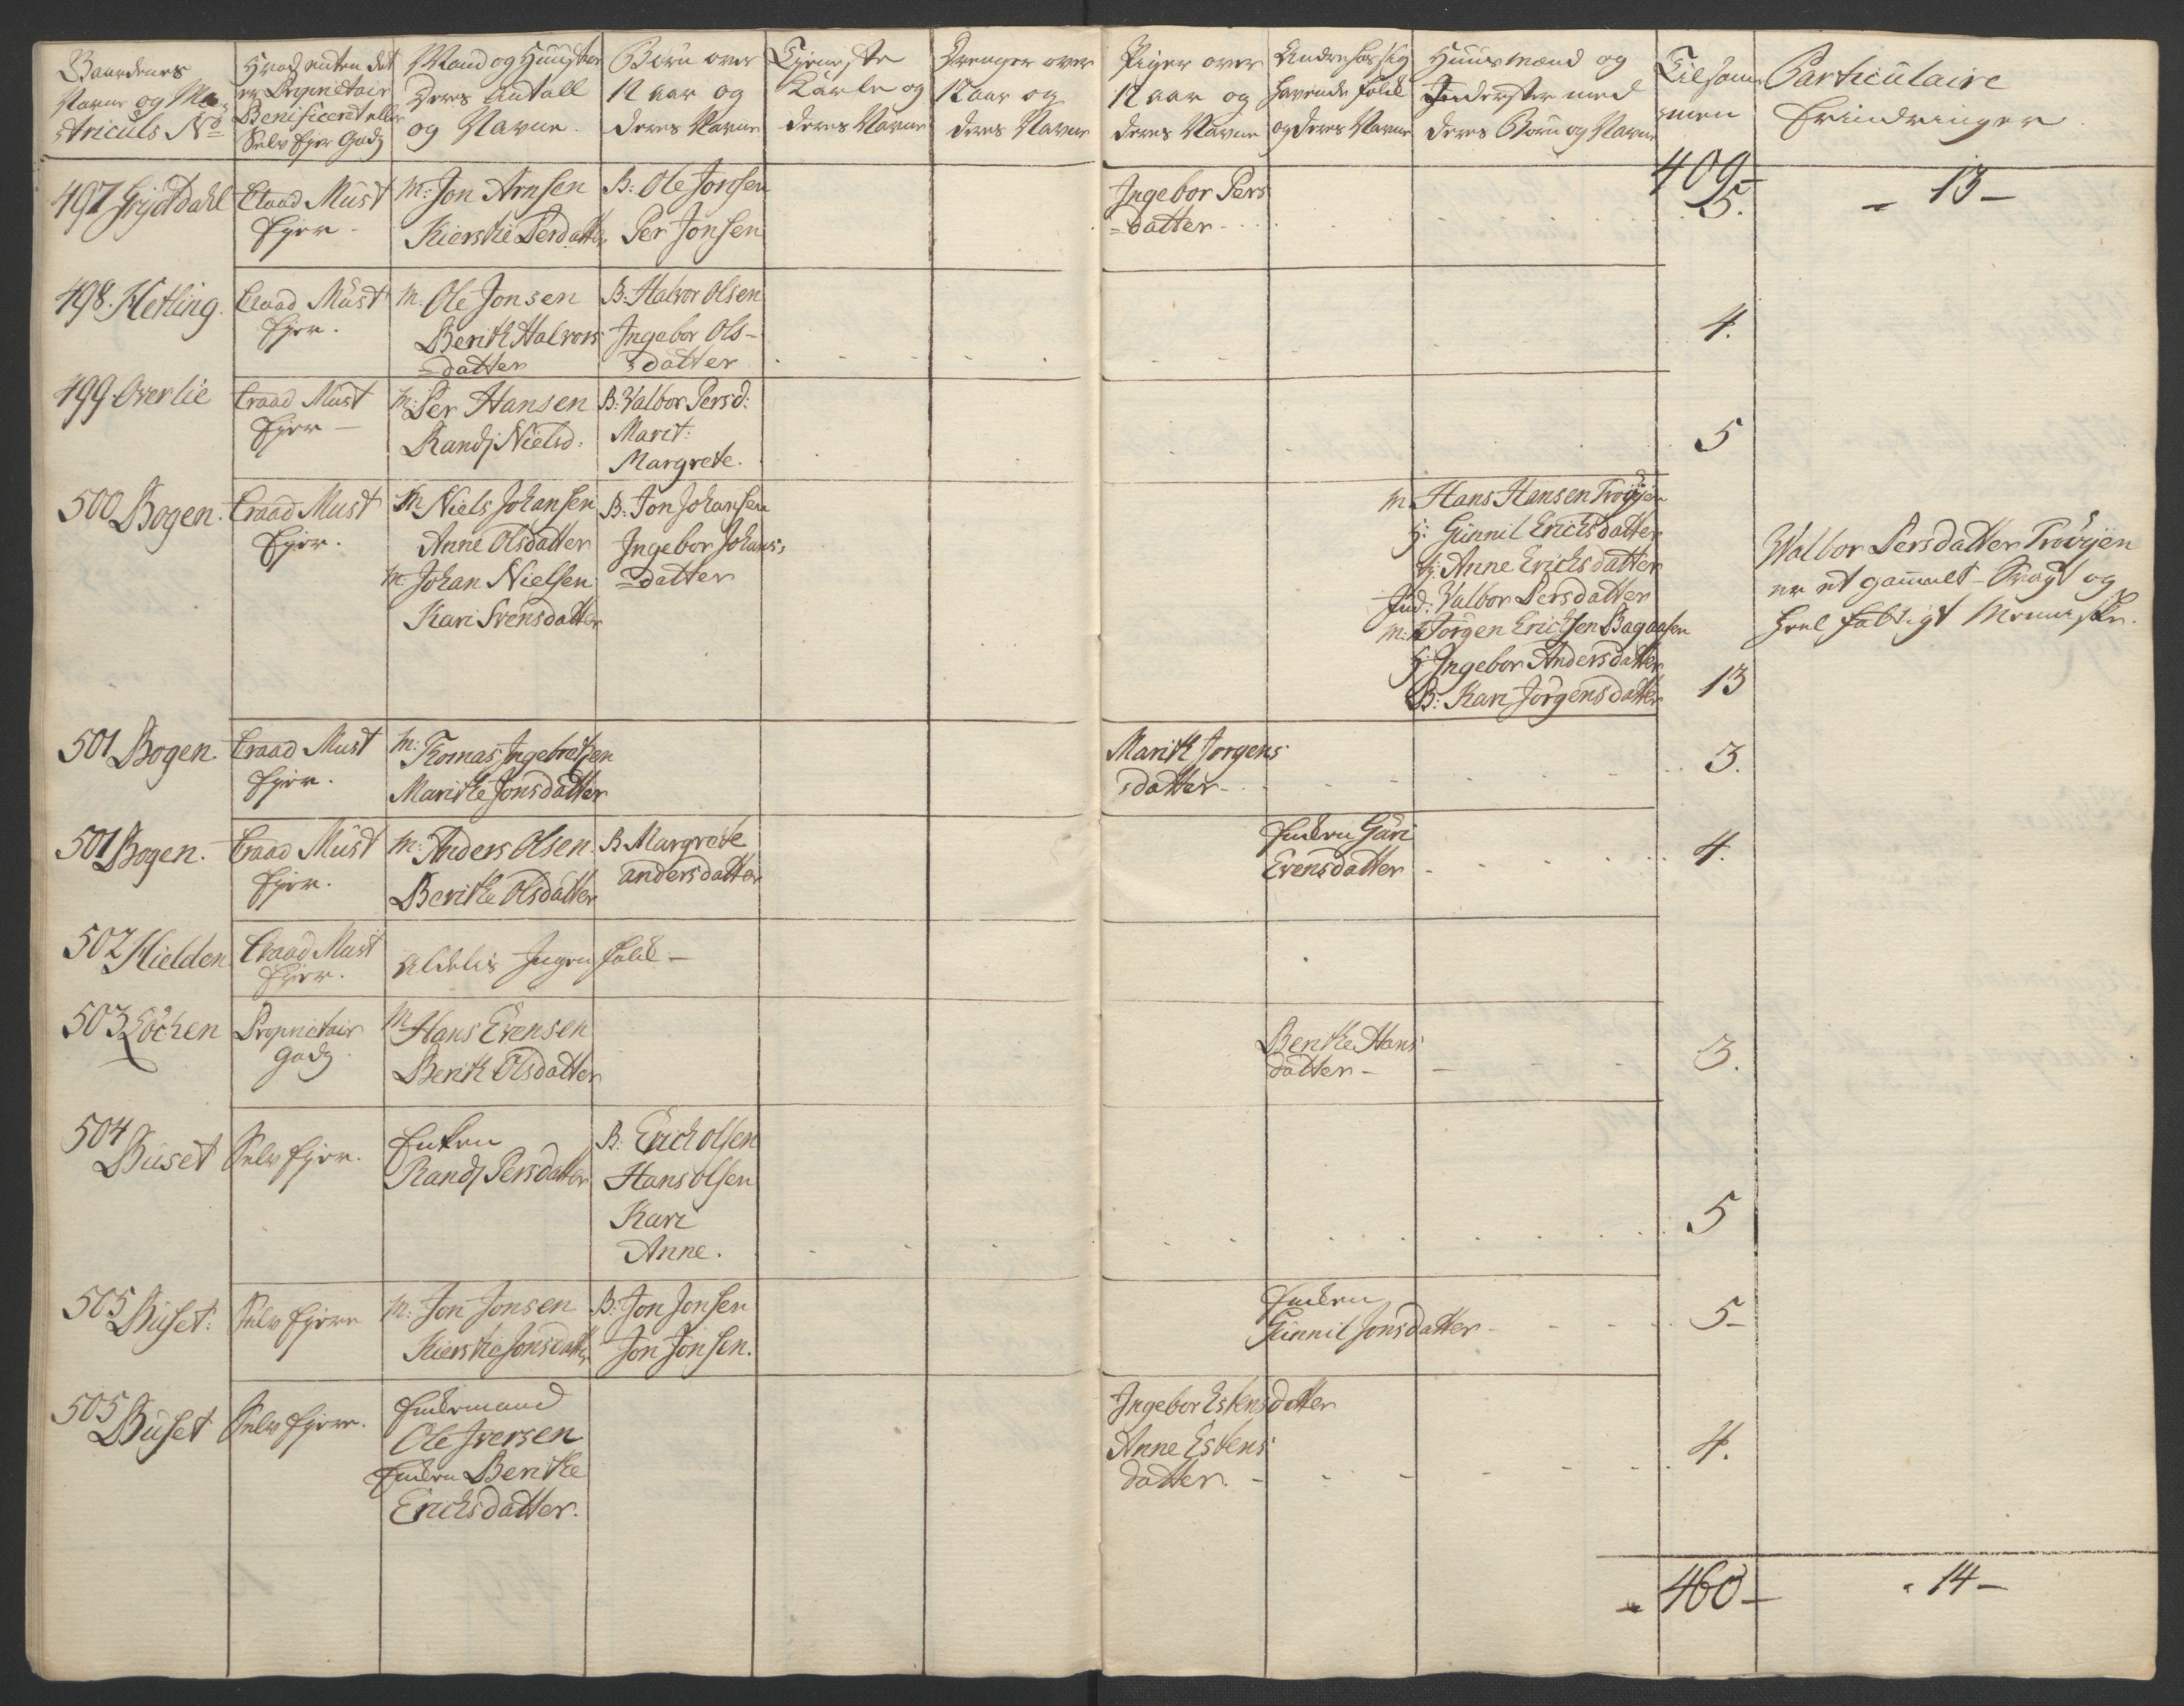 Gaardenes
Navne og Ma-
triculs No
Hvad enten det
er Proprietair
Benificeret eller
Selv Ejer Godz
Mand og Hustrue
Deres Antall
og Navne.
Børn over
12 aar og
deres Navne
Tjeneste
Karle og
deres Navne
Drenger over
12 aar og
deres Navne
Piger over
12 aar og
deres Navne
Andre hos sig
havende folk
og deres Navne
Huusmænd og
Inderster med
deres Børn og Navne
Tilsam-
men
Particulaire
Erindringer
409-
- 13-
497
Craad Must
Ejer-
M: Jon Arnsen
Kierstie Persdatter
B: Ole Jonsen
Per Jonsen
Ingebor Pers
=datter
5.
498. Ketling.
Craad Must
Ejer.
M: Ole Jonsen
Berith Halvors
=datter
B: Halvor Olsen
Ingebor Ols-
datter
4.
499. Overlie
Craad Must
Ejer-
M: Per Hansen
Randj Nielsd.
B: Valbor Persd:
Marit:
Margrete.
5
500 Bogen.
Craad Must
Ejer.
M Niels Johansen
Anne Olsdatter
M: Johan Nielsen
Kari Svensdatter
B: Jon Johansen
Ingebor Johans:
=datter
M Hans Hansen Trøyjen
H: Günnil Erichsdatter
Anne Erichsdatter
Ind: Valbor Persdatter
M: Jörgen Erichsen Bagaasen
H: Ingebor Andersdatter
B: Kari Jörgensdatter
13
Walbor Persdatter Trøyjen
er et gammelt Svagt og
heel fattigt Menniske.
501 Bogen.
Craad Must
Ejer.
M: Thomas Ingebretsen
Marithe Jonsdatter
Marith Jorgens
datter-
3.
501 Bogen.
Craad Must
Ejer.
M: Anders Olsen.
Berithe Olsdatter
B Margrete
andersdatter
Enken Güri
Evensdatter
4.
502 Kielden
Craad Must
Ejer.
Aldelis Ingen folk-
503 Löchen
Proprietair
Godz.
M Hans Evensen
Berith Olsdatter
Berithe Hans
datter-
3.
504
Büset
Selv Ejer.
Enken
Randj Persdatter
B: Erich Olsen
Hans Olsen
Kari
Anne.
5
505
Büset:
Selv Ejere
M: Jon Jonsen
Kierstie Jonsdatter
B: Jon Jonsen
Jon Jonsen.
Enken
Günnil Jonsdatter
5-
505
Büset
Selv Ejere.
Enkemand
Ole Iversen
Enken Berithe
Erichsdatter.
Ingebor Estensdatter
Anne Estens
datter.
4.
460-
14-